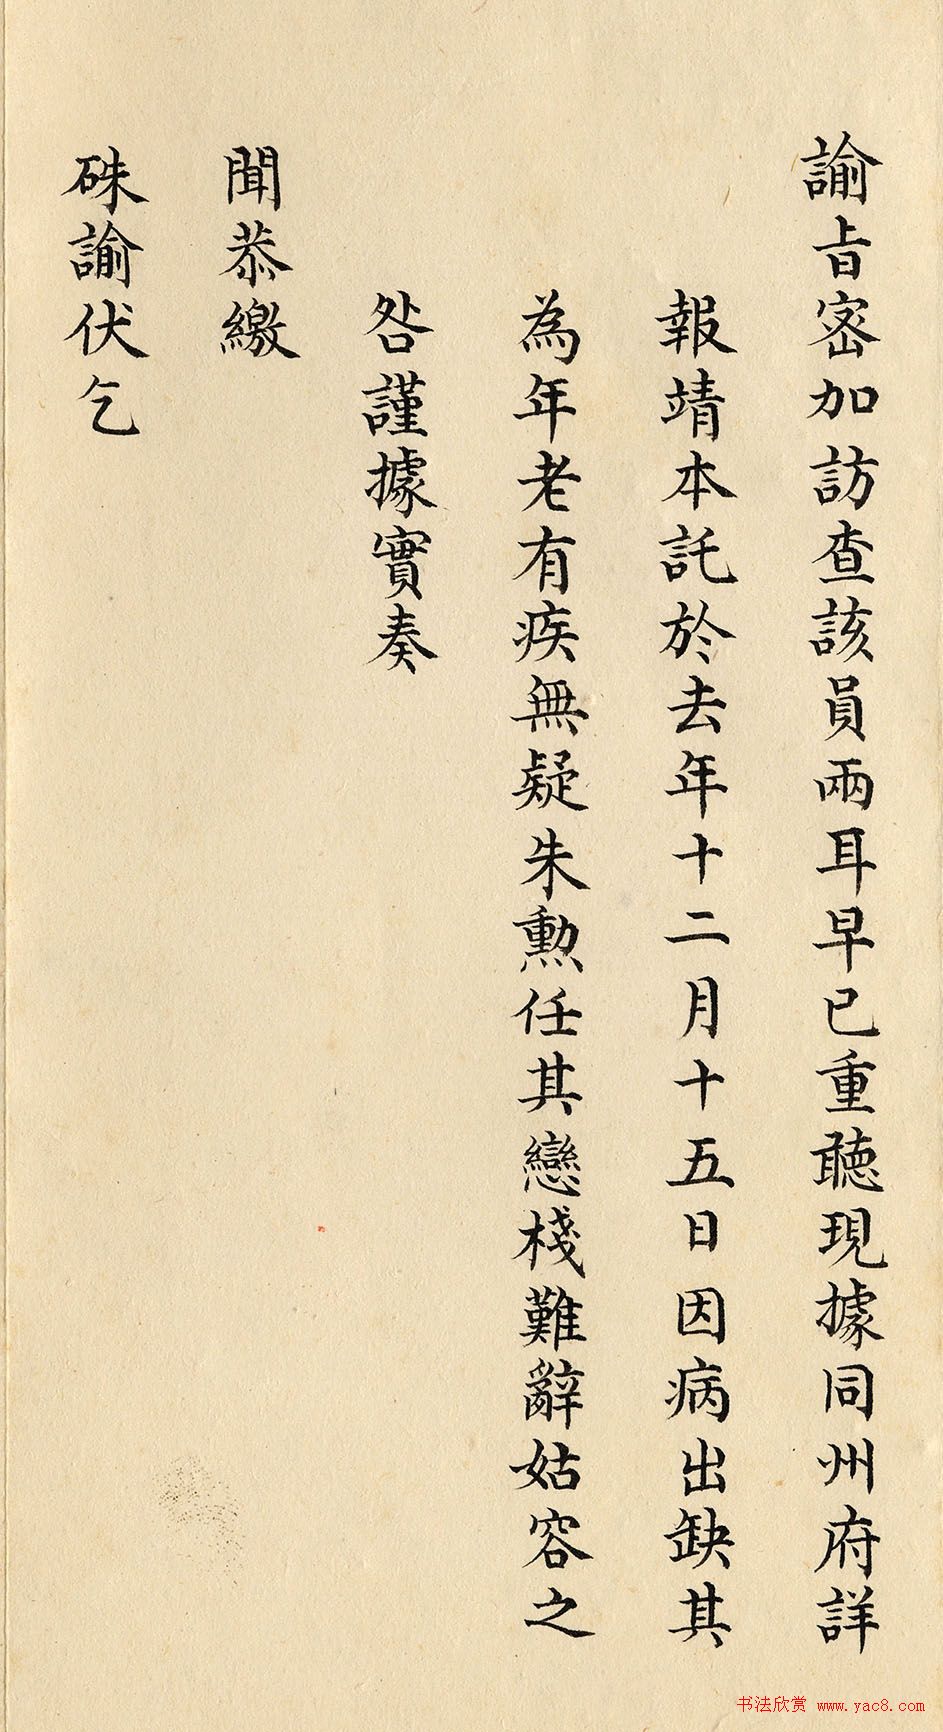 諭旨密加訪查該員兩耳早已重聽現據同州府詳
報靖本託於去年十二月十五日因病出缺其
為年老有疾無疑朱勳任其戀棧難辭姑容之
咎謹據實奏
聞恭繳
硃諭伏乞
书法欣赏 www.yac8.com